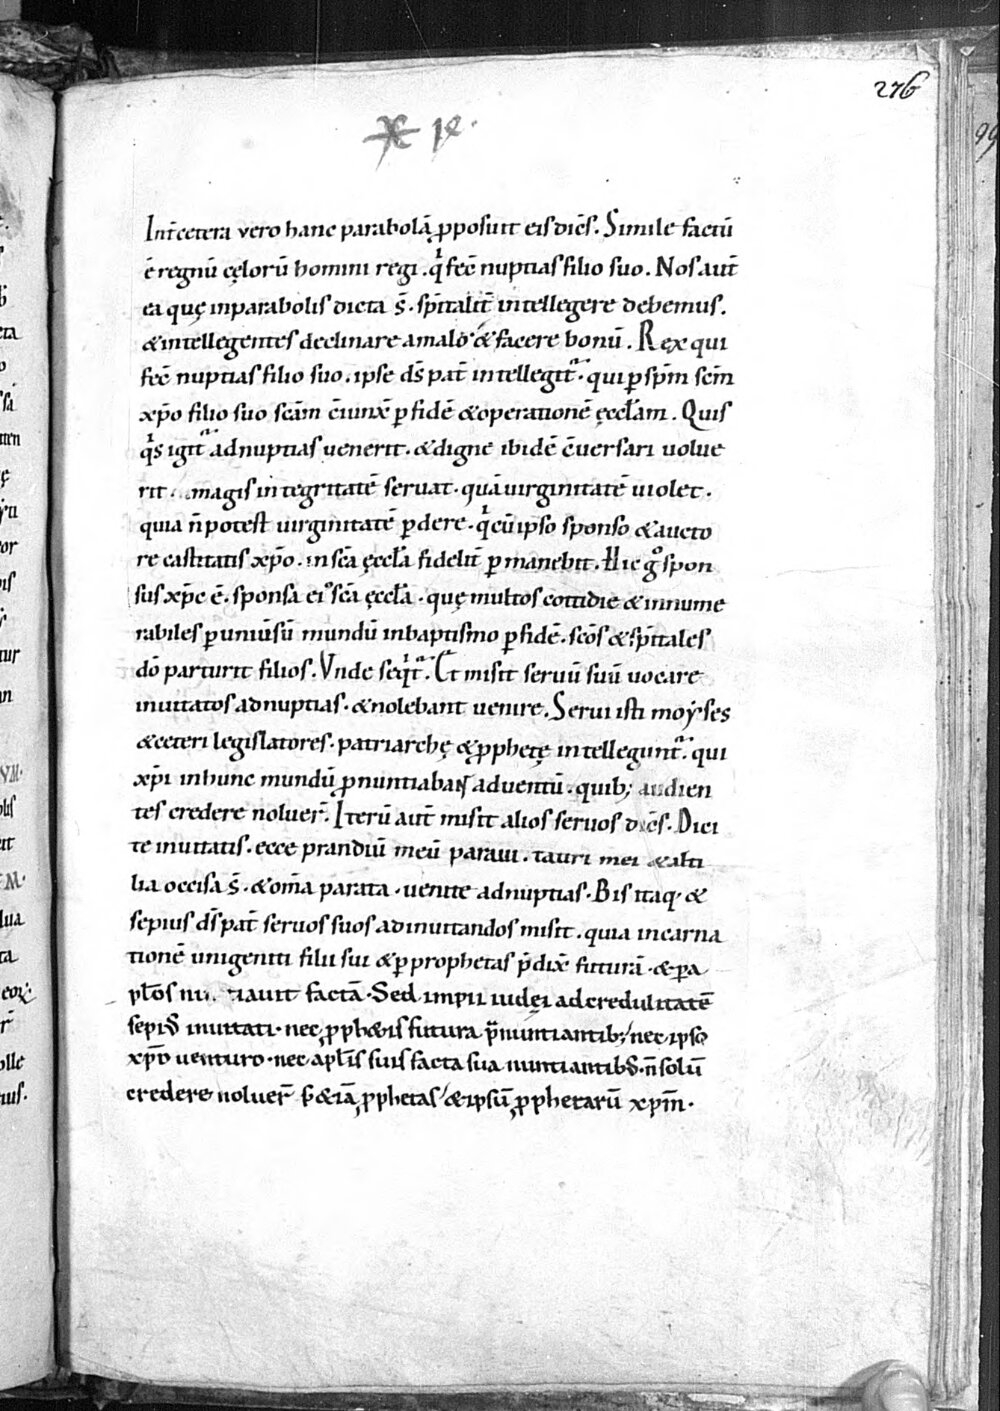 276
Int̄ cetera vero hanc parabolā ꝓposuit eis dicēs. Simile factū
ē regnū cęlorū homini regi. q̇ fec̄ nuptias filio suo. Nos aut̄
ea quę in parabolis dicta s̄. sp̄italit̄ intellegere debemus.
& intellegentes declinare a malo. & facere bonū. Rex qui
fec̄ nuptias filio suo. ipse d̄s pat̄ intellegit᷑. qui ꝑ sp̄m scm̄
xp̄o filio suo scām c̄iunx̄ ꝑ fidē & operationē ęccl̄am. Quis
q̇s igit᷑ ad nuptias venerit. & digne ibidē c̄versari uolue
rit. magis integritatē servat. quā uirginitatē uiolet.
quia n̄ potest uirginitatē ꝑdere. q̇ cū ipso sponso & aucto
re castitatis xp̄o. in scā ęccl̄a fideliū ꝑmanebit. Hic gͦ spon
sus xp̄c ē. sponsa ei᷒ scā ęccl̄a. quę multos cottidie & innume
rabiles ꝑ uniūsū mundū in baptismo ꝑ fidē. scōs & sp̄itales
dō parturit filios. Vnde seq̇t᷑. Et misit servū suū uocare
inuitatos ad nuptias. & nolebant uenire. Serui isti moyses
& ceteri legislatores. patriarchę & ꝓphetę intellegunt᷑. qui
xp̄i in hunc mundū ꝓnuntiabaɴ̄ adventū. quib; audien
tes credere noluer̄. Iterū aut̄ misit alios servos dicēs. Dici
te inuitatis. ecce prandiū meū paraui. tauri mei & alti
lia occisa s̄. & om̄a parata. uenite ad nuptias. Bis itaq. &
sepius d̄s pat̄ servos suos ad inuitandos misit. quia incarna
tionē unigeniti filii sui & ꝑ prophetas p̄dix̄ futurā. & ꝑ a
pl̄os factā. Sed impii iudęi ad credulitatē
sepi᷒ inuitati. nec ꝓph&is futura p̄nuntiantib; nec ipso
xp̄o venturo. nec apl̄is suis facta sua nuntiantib᷒. n̄ solū
credere noluer̄ s̄ & iā ꝓphetas & ipsū ꝓphetarū xp̄m.